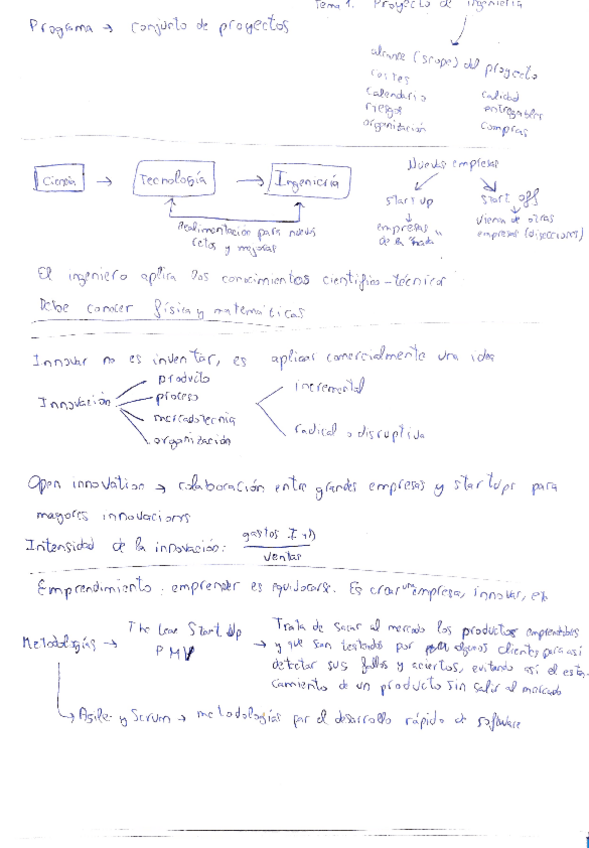 Tema 1. Proyecto de ingeniería
Programa → conjunto de proyectos
alcance (scope) del proyecto
costes
calendario
riesgos
organización
calidad
entregables
compras
Ciencia → Tecnología → Ingeniería
Realimentación para nuevos
retos y mejoras
Nuevas empresas
start up
empresas
de la nada
start off
Viene de otras
empresas (disecciones)
El ingeniero aplica los conocimientos científico-técnicos
Debe conocer física y matemáticas
Innovar no es inventar, es aplicar comercialmente una idea
Innovación
producto
proceso
mercadotecnia
organización
incremental
radical o disruptiva
Open innovation → colaboración entre grandes empresas y startups para
mayores innovaciones
Intensidad de la innovación: gastos I+D
ventas
Emprendimiento: emprender es equivocarse. Es crear una empresa, innovar, etc
Metodologías → The Lean Start Up
PMV
→ Trata de sacar al mercado los productos
y que son testados por algunos clientes para así
detectar sus fallos y aciertos, evitando así el
camiento de un producto sin salir al mercado
→ Agile y Scrum → metodologías par el desarrollo rápido de software